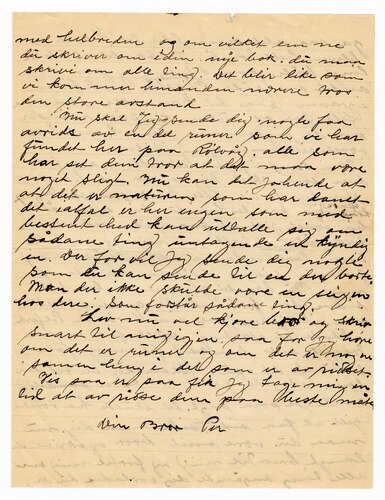 med helbreden og om vilket em ne
du skriver om i din nye bok. du maa
skrivi om alle ting. Det blir like som
vi kom mer hinanden nærere tros
den store avstand
Nu skal Jeg sende dig nogle faa
avrids av en del runer som vi har
fundet her paa alle som
har set dem tror at det maa vore
noget sligt. Nu kan det jo hende at
at det er naturen som har danet
det ialfal er her ingen som med
bestemt hed kan uttalle sig om
sådane ting untagende en kyndig
en. Derfor vil Jeg sende dig nogle
som du kan sende til en der borte.
Man der ikke skulde vore en
hos dere. som forstår sådane ting.
Lev nu vel kjore bror og skriv
snart til mig igjen, saa for Jeg hore
om det er runer og om det er nogen
sammenheng i det som er av ridset.
Vis saa er saa fik Jeg tage mig en
tid at av ridse dem paa beste måte
Din Bror Per